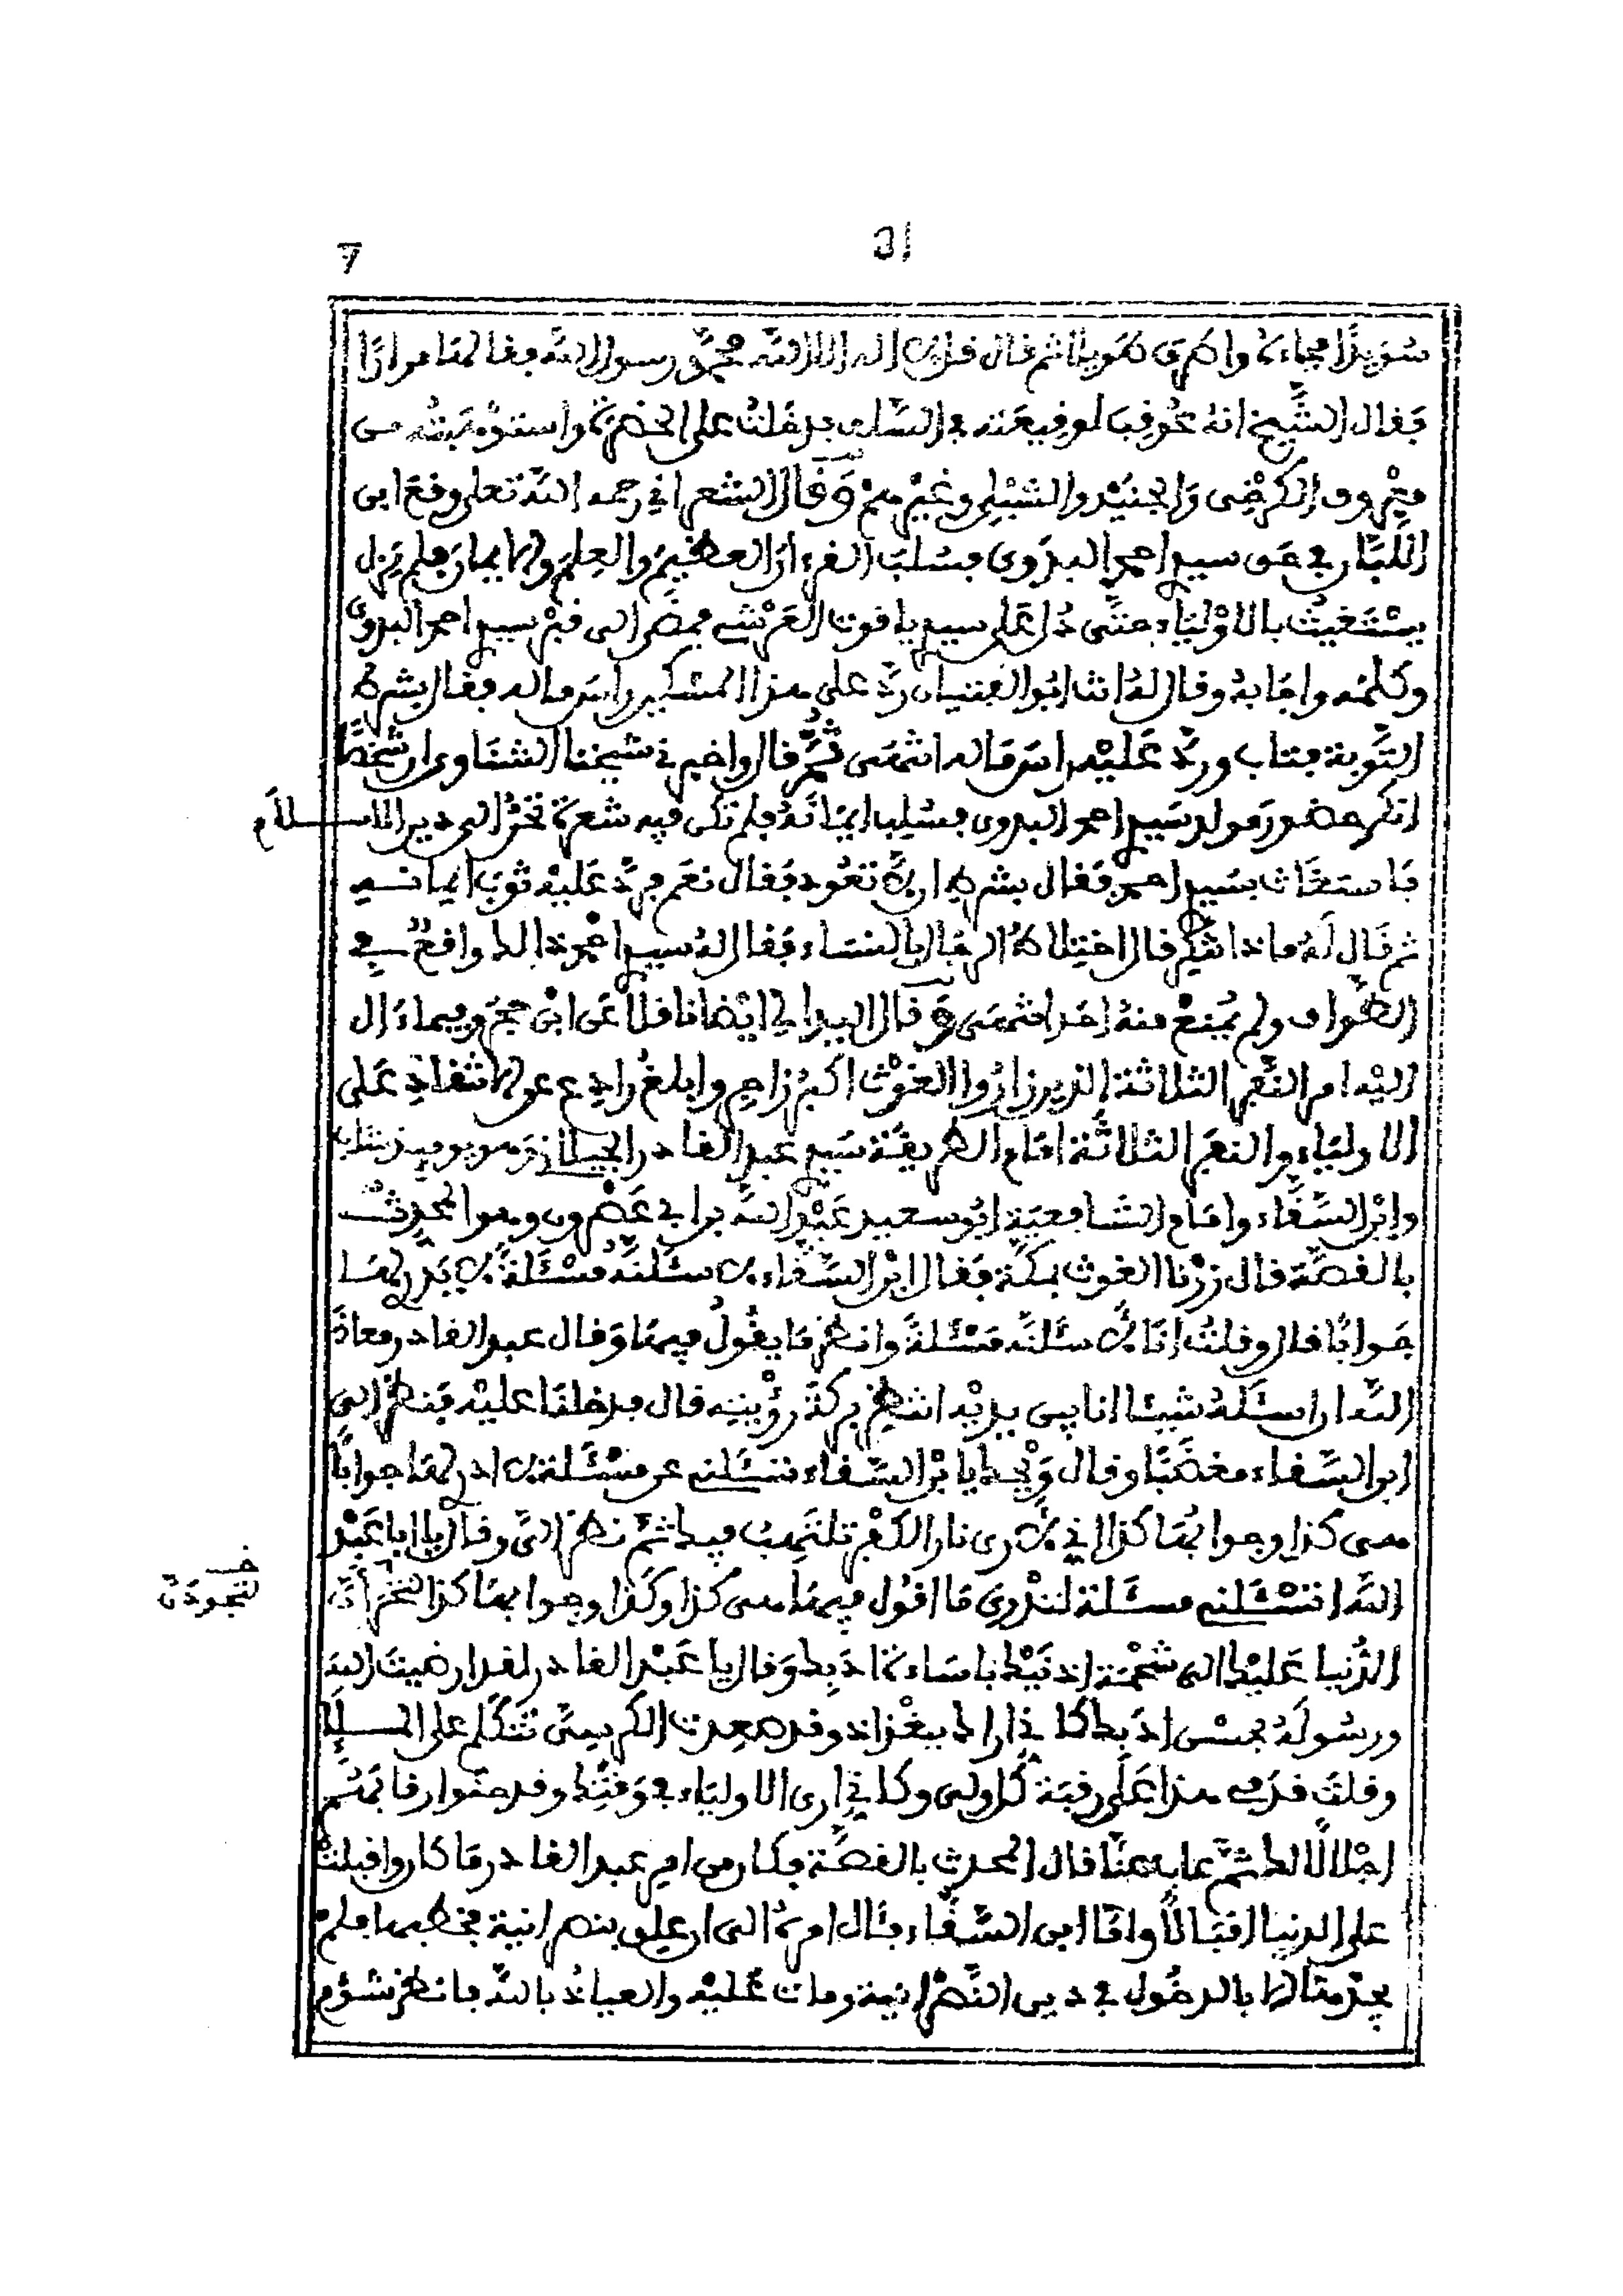 7
سُوَيْدًا فجاءه وأطرق طويلا ثم قال قل لا اله الا الله محمد رسول الله فقالها مرارا
فقال الشيخ انه عُوقِب لوقيعته في السلف فدخلت على الحضرة واستوهبته من
معروف الكرخي والجنيد والشبلي وغيرهم وقال الشعراني رحمه الله تعلى وقع ابن
اللبان في حق سيد احمد البدوي فسلب القرءان العظيم والعلم والايمان فلم يزل
يستغيث بالاولياء حتى دُل على سيد ياقوت العرشي فمضى الى قبر سيد احمد البدوي
وكلمه واجابه وقال له انت ابو الفتيان رد على هذا المسكين راس ماله فقال بشرط
التوبة فتاب ورد عليه راس ماله انتهى ثم قال واخبرني شيخنا الشناوي ان شخصا
انكر حضور مولد سيد احمد البدوي فسلب ايمانه فلم تكن فيه شعرة تحن الى دين الاسلام
فاستغاث بسيد احمد فقال بشرط ان لا تعود فقال نعم فرد عليه ثوب ايمانه
ثم قال له ماذا تنكر قال اختلاط الرجال بالنساء فقال له سيد احمد ذالك واقع في
الطواف ولم يمنع منه احد انتهى وقال اليدالي ايضا ناقلا عن ابن حجر وفيما ءال
اليه امر النفر الثلاثة الذين زاروا الغوث اكبر زاجر وابلغ رادع عن الانتقاد على
الاولياء والنفر الثلاثة امام الطريقة سيد عبد القادر الجيلاني وهو يوميذ شاب
وابن السقاء وامام الشافعية ابو سعيد عبد الله بن ابي عصرون وهو المحدث
بالقصة قال زرنا الغوث بمكة فقال ابن السقاء لا سئلنه مسئلة لا يدر لها
جوابا قال وقلت انا لا سئلنه مسئلة وانظر ما يقول فيها وقال عبد القادر معاذ
الله ان اسئله شيئا انا بين يديه انتظر بركة رؤيته قال فدخلنا عليه فنظر الى
ابن السقاء مغضبا وقال ويحك يا بن السقاء تسئلني عن مسئلة لا ادر لها جوابا
هى كذا وجوابها كذا اني لا رى نار الكفر تلتهب فيك ثم نظر الي وقال يا ابا عبد
الله اتسئلني مسئلة لتدري ما اقول فيها هى كذا وكذا وجوابها كذا لتخرن
الدنيا عليك الى شحمة اذنيك باساءة ادبك وقال يا عبد القادر لقد ارضيت الله
ورسوله بحسن ادبك كاني اراك ببغداد وقد صعدت الكرسي تتكلم على الملإ
وقلت قدمي هذا على رقبة كل ولي وكاني ارى الاولياء في وقتك وقد حنوا رقابهم
اجلالا لك ثم غاب عنا قال المحدث بالقصة فكان من امر عبد القادر ما كان واقبلت
على الدنيا اقبالا واما ابن السقاء فئال امره الى ان علق بنصرانية فخطبها فلم
يجد منالا الا بالدخول في دين النصرانية ومات عليه والعياذ بالله فانظر شؤم